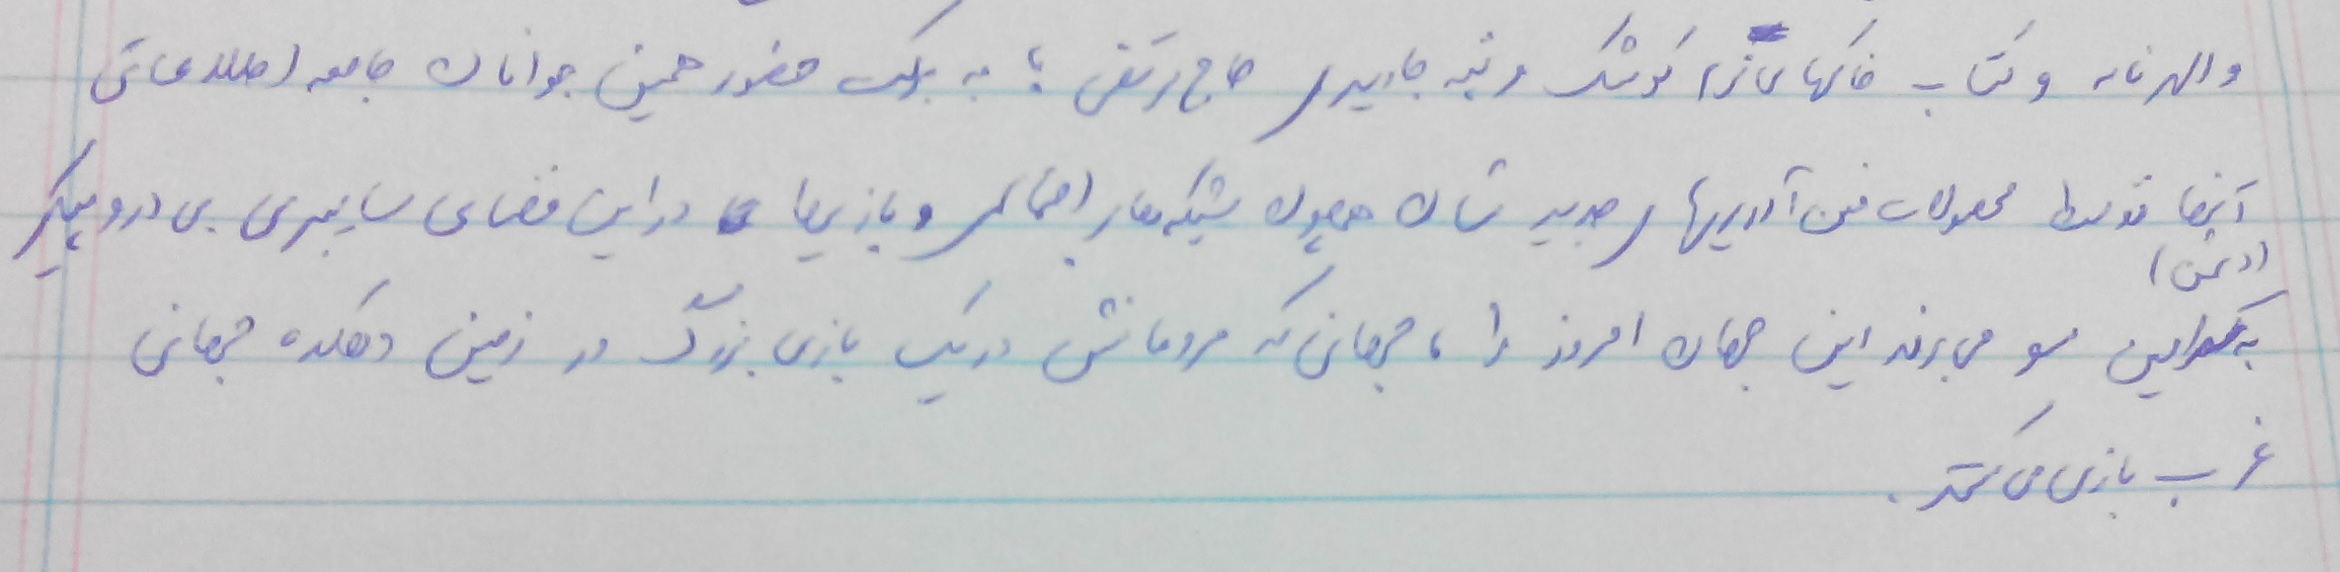 والهرنامه و کتاب خاکهای نرم کوشک و نیمه جادید حاج مرتضی؛ به برکت حضور همین جوانان جامعه اطلاعاتی
آنها توسط محصولات فن آوریهای جدیدشان همچون شبکه‌های اجتماعی و بازیها در این فضای سایبری بی در و پیکر
(دشمن)
به کدامین سو می برند این جهان امروز را، جهانی که مردمانش در یک بازی بزرگ در زمین دهکده جهانی
غرب بازی می کنند.